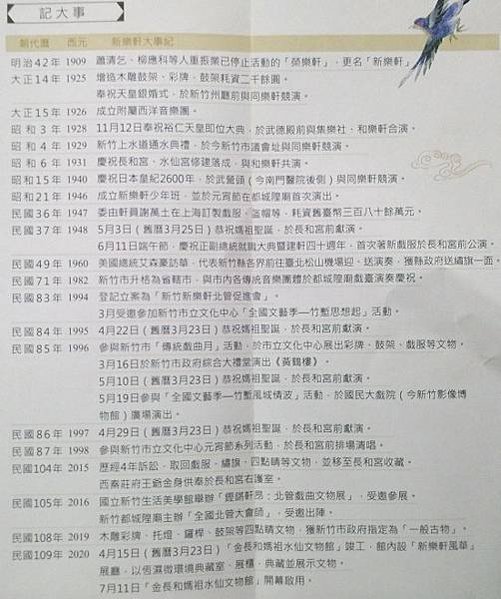 記大事
朝代曆 西元 新樂軒大事紀
明治42年 1909 蕭清乞、楊應科等人重振業已停止活動的「榮樂軒」，更名「新樂軒」。
大正14年 1925 增造木雕鼓架、彩牌，鼓架耗資二千餘圓。
奉祝天皇銀婚式，於新竹州廳前與同樂軒競演。
大正15年 1926 成立附屬西洋音樂團。
昭和3年 1928 11月12日奉祝裕仁天皇即位大典，於武德殿前與集樂社、和樂軒合演。
昭和4年 1929 新竹上水道通水典禮，於今新竹市議會址與同樂軒競演。
昭和6年 1931 慶祝長和宮、水仙宮修建落成，與和樂軒共演。
昭和15年 1940 慶祝日本皇紀2600年，於武營頭(今南門醫院後側)與同樂軒競演。
昭和21年 1946 成立新樂軒少年班，並於元宵節在都城隍廟首次演出。
民國36年 1947 委由軒員謝萬土在上海訂製戲服、盔帽等，耗資舊臺幣三百八十餘萬元。
民國37年 1948 5月3日(舊曆3月25日)恭祝媽祖聖誕，於長和宮前獻演。
6月11日端午節，慶祝正副總統就職大典暨建軒四十週年，首次著新戲服於長和宮前公演。
民國49年 1960 美國總統艾森豪訪華，代表新竹縣各界前往臺北松山機場迎、送演奏，獲縣政府送繡旗一面。
民國71年 1982 新竹市升格為省轄市，與市內各傳統音樂團體於都城隍廟戲臺演奏慶祝。
民國83年 1994 登記立案為「新竹新樂軒北管促進會」。
3月受邀參加新竹市立文化中心「全國文藝季—竹塹思想起」活動。
民國84年 1995 4月22日(舊曆3月23日)恭祝媽祖聖誕，於長和宮前獻演。
民國85年 1996 參與新竹市「傳統戲曲月」活動，於市立文化中心展出彩牌、鼓架、戲服等文物。
3月16日於新竹市政府綜合大禮堂演出《黃鶴樓》。
5月10日(舊曆3月23日)恭祝媽祖聖誕，於長和宮前獻演。
5月19日參與「全國文藝季—竹塹風城情波」活動，於國民大戲院(今新竹影像博
物館)廣場演出。
民國86年 1997 4月29日(舊曆3月23日)恭祝媽祖聖誕，於長和宮前獻演。
民國87年 1998 參與新竹市立文化中心元宵節系列活動，於長和宮前排場清唱。
民國104年 2015 歷經4年訴訟，取回戲服、繡旗、四點睛等文物，並移至長和宮收藏。
西秦莊府王爺金身供奉於長和宮右護室。
民國105年 2016 國立新竹生活美學館舉辦「鏗鏘軒昂：北管戲曲文物展」，受邀參展。
新竹都城隍廟主辦「全國北管大會師」，受邀出陣。
民國108年 2019 木雕彩牌、托燈、鑼槓、鼓架等四點睛文物，獲新竹市政府指定為「一般古物」。
民國109年 2020 4月15日(舊曆3月23日)「金長和媽祖水仙文物館」竣工，館內設「新樂軒風華」
展廳，以恆濕微環境典藏室、展櫃，典藏並展示文物。
7月11日「金長和媽祖水仙文物館」開幕啟用。